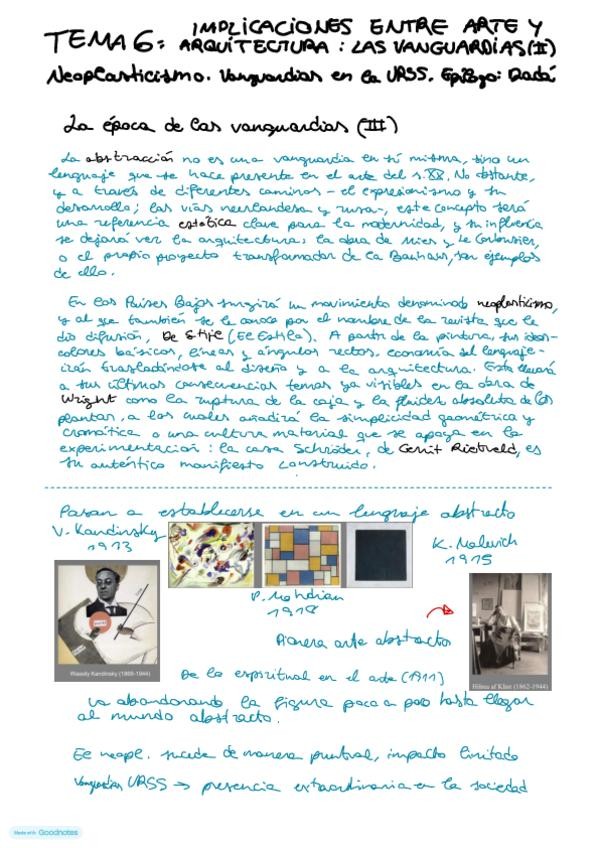 TEMA 6: IMPLICACIONES ENTRE ARTE Y
ARQUITECTURA: LAS VANGUARDIAS (II)
Neoplasticismo. Vanguardias en la URSS. Epílogo: Dadá
La época de las vanguardias (III)
La abstracción no es una vanguardia en sí misma, sino un
lenguaje que se hace presente en el arte del s.XX. No obstante,
y a través de diferentes caminos - el expresionismo y su
desarrollo; las vías neerlandesa y rusa-, este concepto será
una referencia estética clave para la modernidad, y su influencia
se dejará ver la arquitectura: la obra de Mies y Le Corbusier,
o el propio proyecto transformador de la Bauhaus, son ejemplos
de ello.
En los Países Bajos surgirá un movimiento denominado neoplasticismo,
y al que también se le conoce por el nombre de la revista que le
dio difusión, De Stijl (El Estilo). A partir de la pintura, sus ideas-
colores básicos, líneas y ángulos rectos, economía del lenguaje-
irán trasladándose al diseño y a la arquitectura. Esta llevará
a sus últimas consecuencias temas ya visibles en la obra de
Wright como la ruptura de la caja y la fluidez absoluta de las
plantas, a las cuales añadirá la simplicidad geométrica y
cromática o una cultura material que se apoya en la
experimentación: la casa Schröder, de Gerrit Rietveld, es
su auténtico manifiesto construido.
Pasan a establecerse en un lenguaje abstracto
V. Kandinsky
1913
K. Malevich
1915
P. Mondrian
1918
Pionera arte abstracto
Wassily Kandinsky (1866-1944)
Hilma af Klint (1862-1944)
De lo espiritual en el arte (1911)
va abandonando la figura poco a poco hasta llegar
al mundo abstracto.
El neopl. sucede de manera puntual, impacto limitado
Vanguardias URSS → presencia extraordinaria en la sociedad
Made with Goodnotes